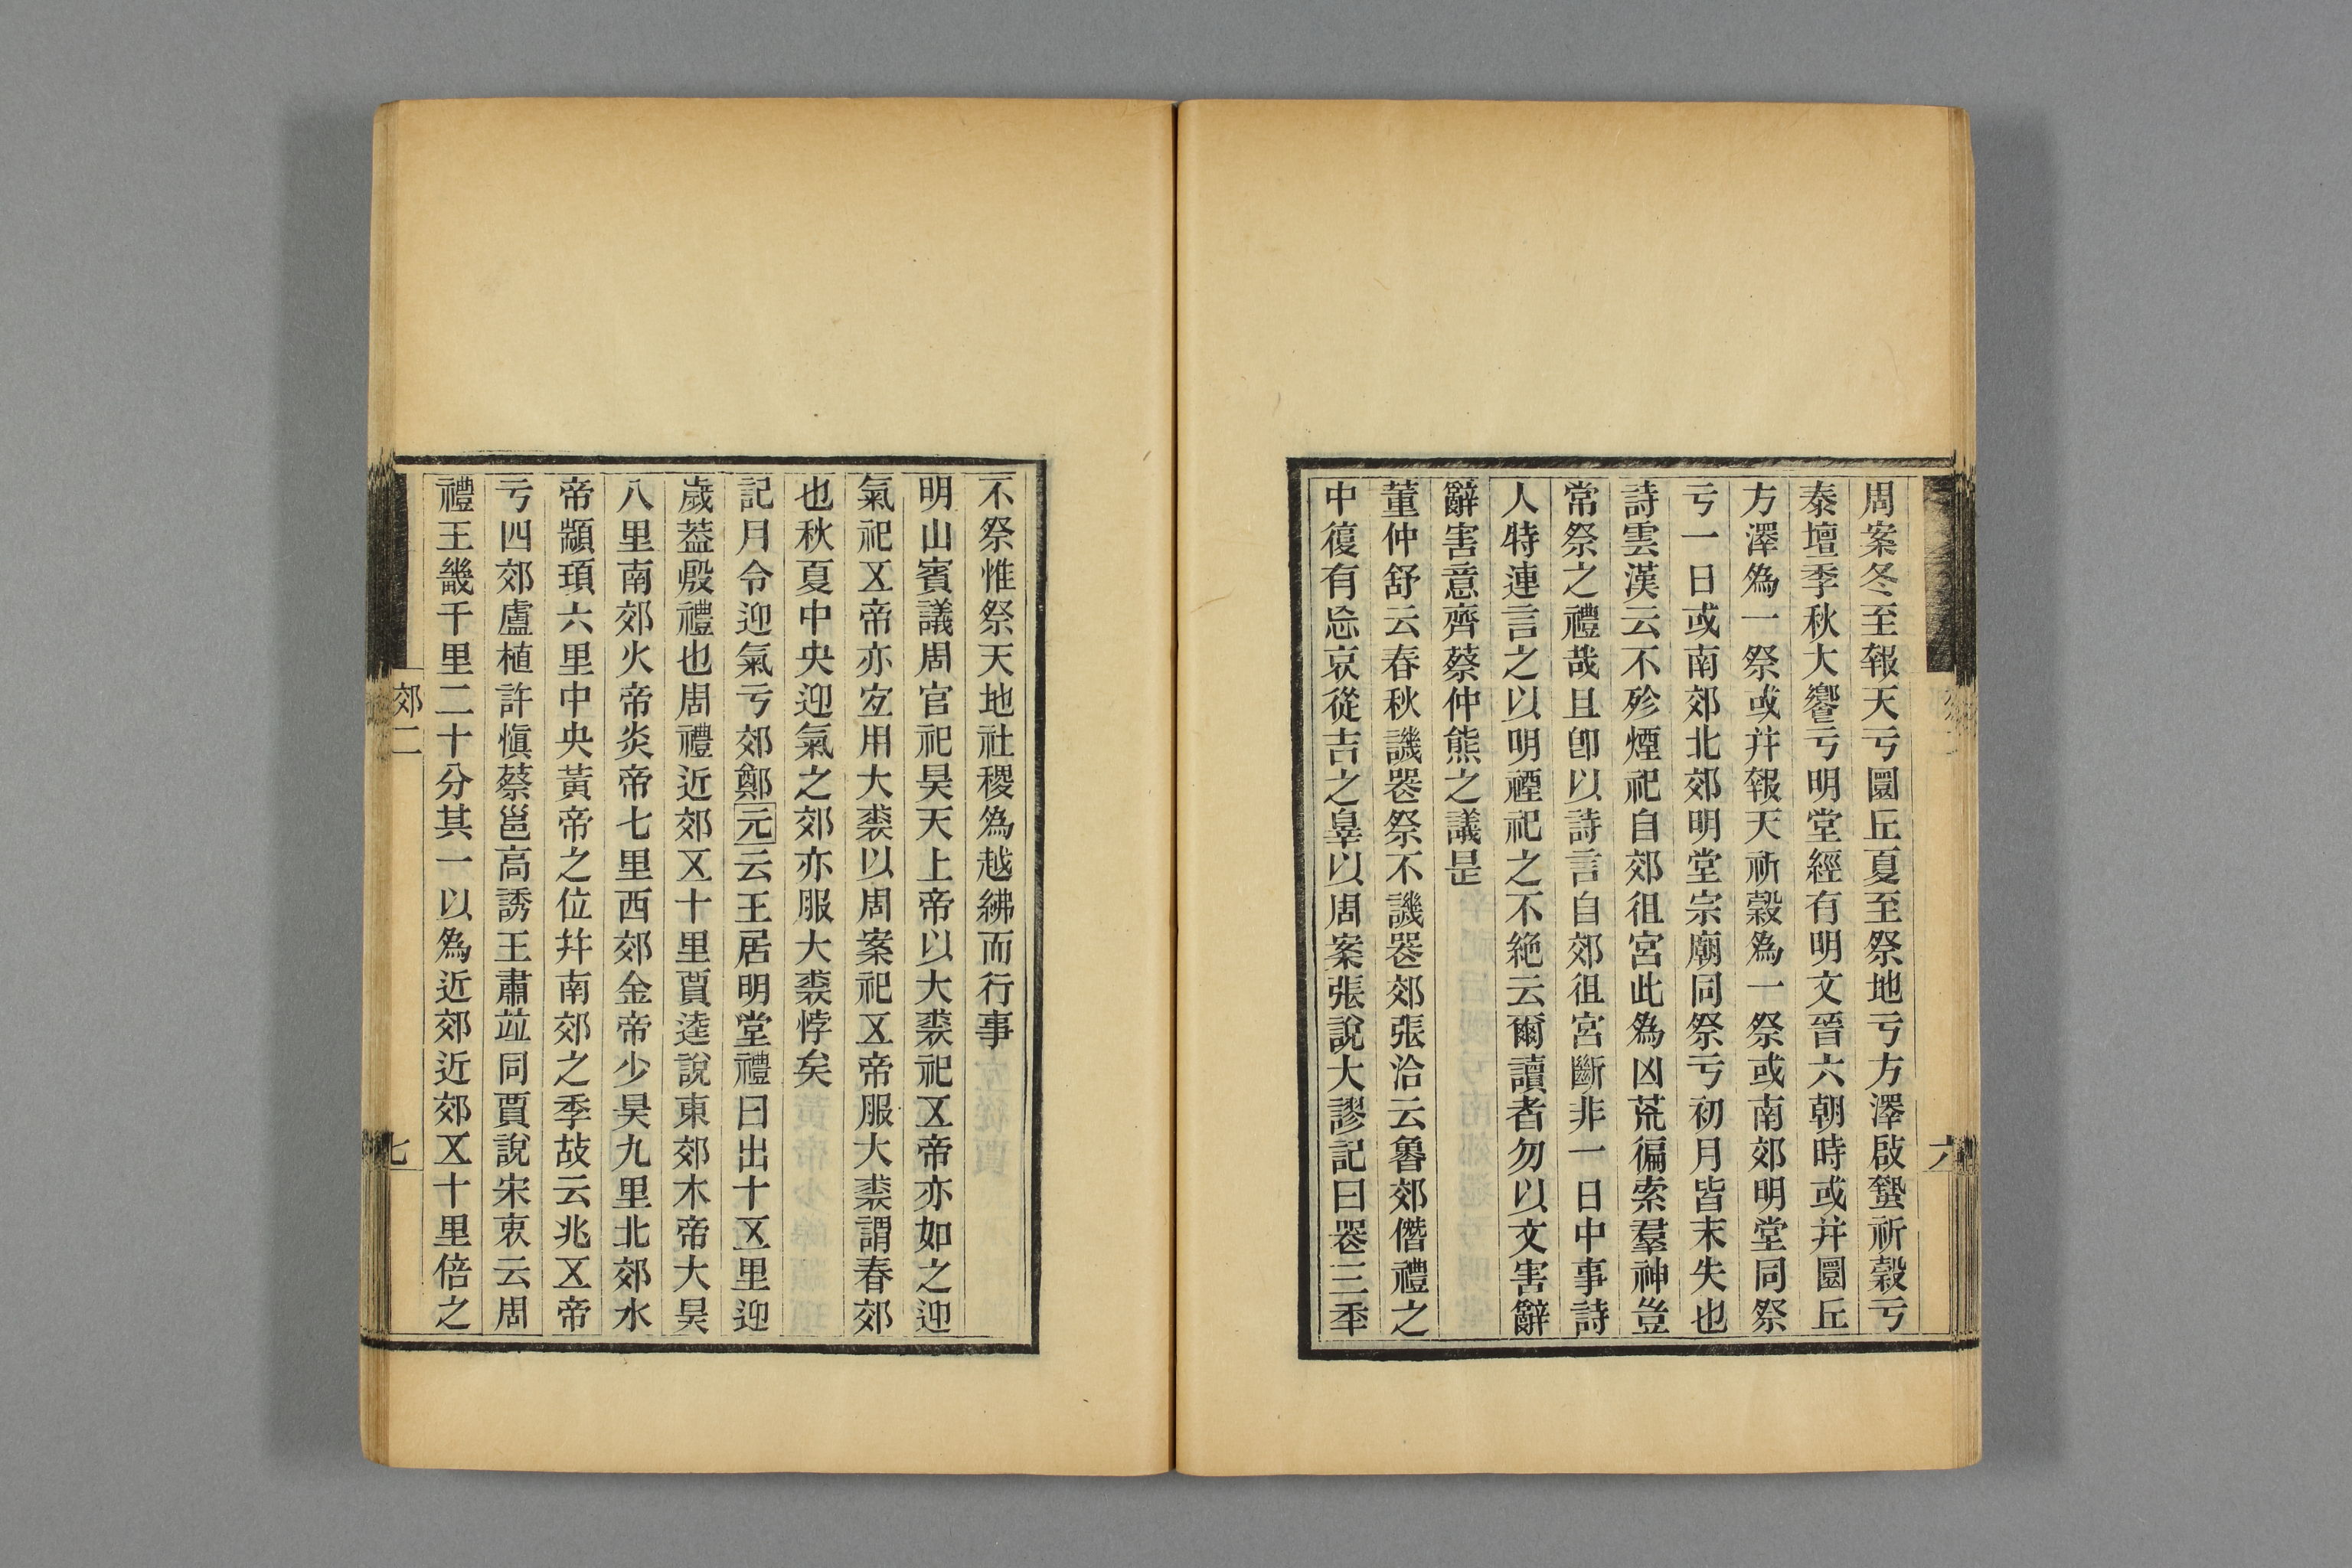 周案冬至報天亏圜丘夏至祭地亏方澤啟蟄祈穀亏
泰壇季秋大饗亏明堂經有明文晉六朝時或并圜丘
方澤爲一祭或并報天祈穀爲一祭或南郊明堂同祭
亏一日或南郊北郊明堂宗廟同祭亏初月皆末失也
詩雲漢云不殄煙祀自郊徂宮此爲凶荒徧索羣神豈
常祭之禮哉且卽以詩言自郊徂宮斷非一日中事詩
人特連言之以明禋祀之不絶云爾讀者勿以文害辭
辭害意齊蔡仲熊之議是
董仲舒云春秋譏喪祭不譏喪郊張洽云魯郊僭禮之
中復有忘哀從吉之辠以周案張說大謬記曰喪三秊
六
不祭惟祭天地社稷爲越紼而行事
明山賓議周官祀昊天上帝以大裘祀㐅帝亦如之迎
氣祀㐅帝亦宐用大裘以周案祀㐅帝服大裘謂春郊
也秋夏中央迎氣之郊亦服大裘悖矣
記月令迎氣亏郊鄭元云王居明堂禮曰出十㐅里迎
歲葢殷禮也周禮近郊㐅十里賈逵說東郊木帝大昊
八里南郊火帝炎帝七里西郊金帝少昊九里北郊水
帝顓頊六里中央黃帝之位并南郊之季故云兆㐅帝
亏四郊盧植許愼蔡邕高誘王肅竝同賈說宋衷云周
禮王畿千里二十分其一以爲近郊近郊㐅十里倍之
郊二
七